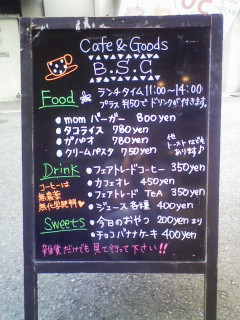 Cafe & Goods
B.S.C
Food ランチタイム11:00~14:00
プラス 料50で ドリンクが付きます。
・mom バーガー 800yen
・タコライス 780yen
・ガパオ 780yen
・クリームパスタ 750yen
他
トーストなども
あります♪
Drink
コーヒーは
無農薬
無化学肥料♥
・フェアトレードコーヒー 350yen
・カフェオレ 450yen
・フェアトレード TeA 350yen
・ジュース各種 400yen
Sweets
・今日のおやつ 200yenより
・チョコバナナケーキ 400yen
雑貨だけでも 見て行って下さい!!